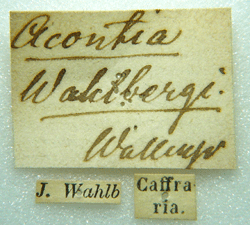 Acontia
Wahlbergi.
Wallengr
J. Wahlb
Caffra-
ria.